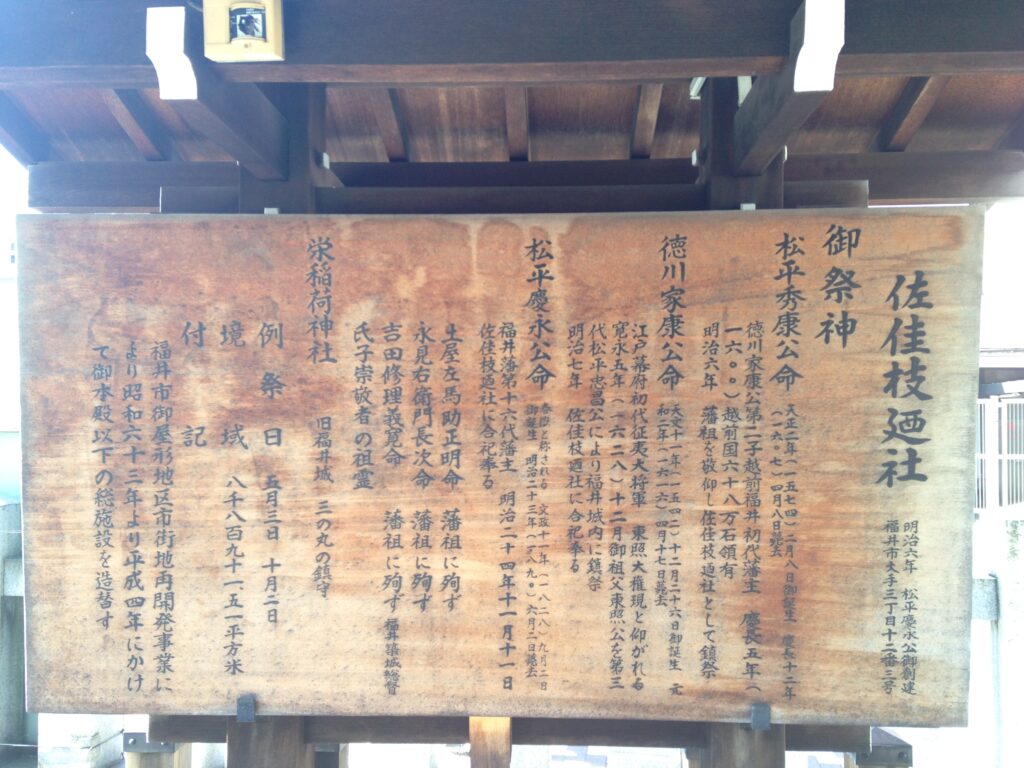 佐佳枝廼社
明治六年 松平慶永公御創建
福井市大手三丁目十二番三号
御祭神
松平秀康公命
天正二年(一五七四)二月八日御誕生 慶長十二年
(一六〇七)四月八日薨去
徳川家康公第二子越前福井初代藩主 慶長五年(
一六〇〇)越前国六十八万石領有
明治六年 藩祖を敬仰し佐佳枝廼社として鎮祭
徳川家康公命
天文十一年(一五四二)十二月二十六日御誕生 元
和二年(一六一六)四月十七日薨去
江戸幕府初代征夷大将軍 東照大権現と仰がれる
寛永五年(一六二八)十二月御祖父東照公を第三
代松平忠昌公により福井城内に鎮祭
明治七年 佐佳枝廼社に合祀奉る
松平慶永公命
春嶽と称される 文政十一年(一八二八)九月二日
御誕生 明治二十三年(一八九〇)六月二日薨去
福井藩第十六代藩主 明治二十四年十一月十一日
佐佳枝廼社に合祀奉る
土屋左馬助正明命 藩祖に殉ず
永見右衛門長次命 藩祖に殉ず
吉田修理義寛命 藩祖に殉ず 福井築城総督
氏子崇敬者の祖霊
栄稲荷神社 旧福井城 三の丸の鎮守
例祭日 五月三日 十月二日
境域 八千八百九十一、五一平方米
付記
福井市御屋形地区市街地再開発事業に
より昭和六十三年より平成四年にかけ
て御本殿以下の総施設を造替す